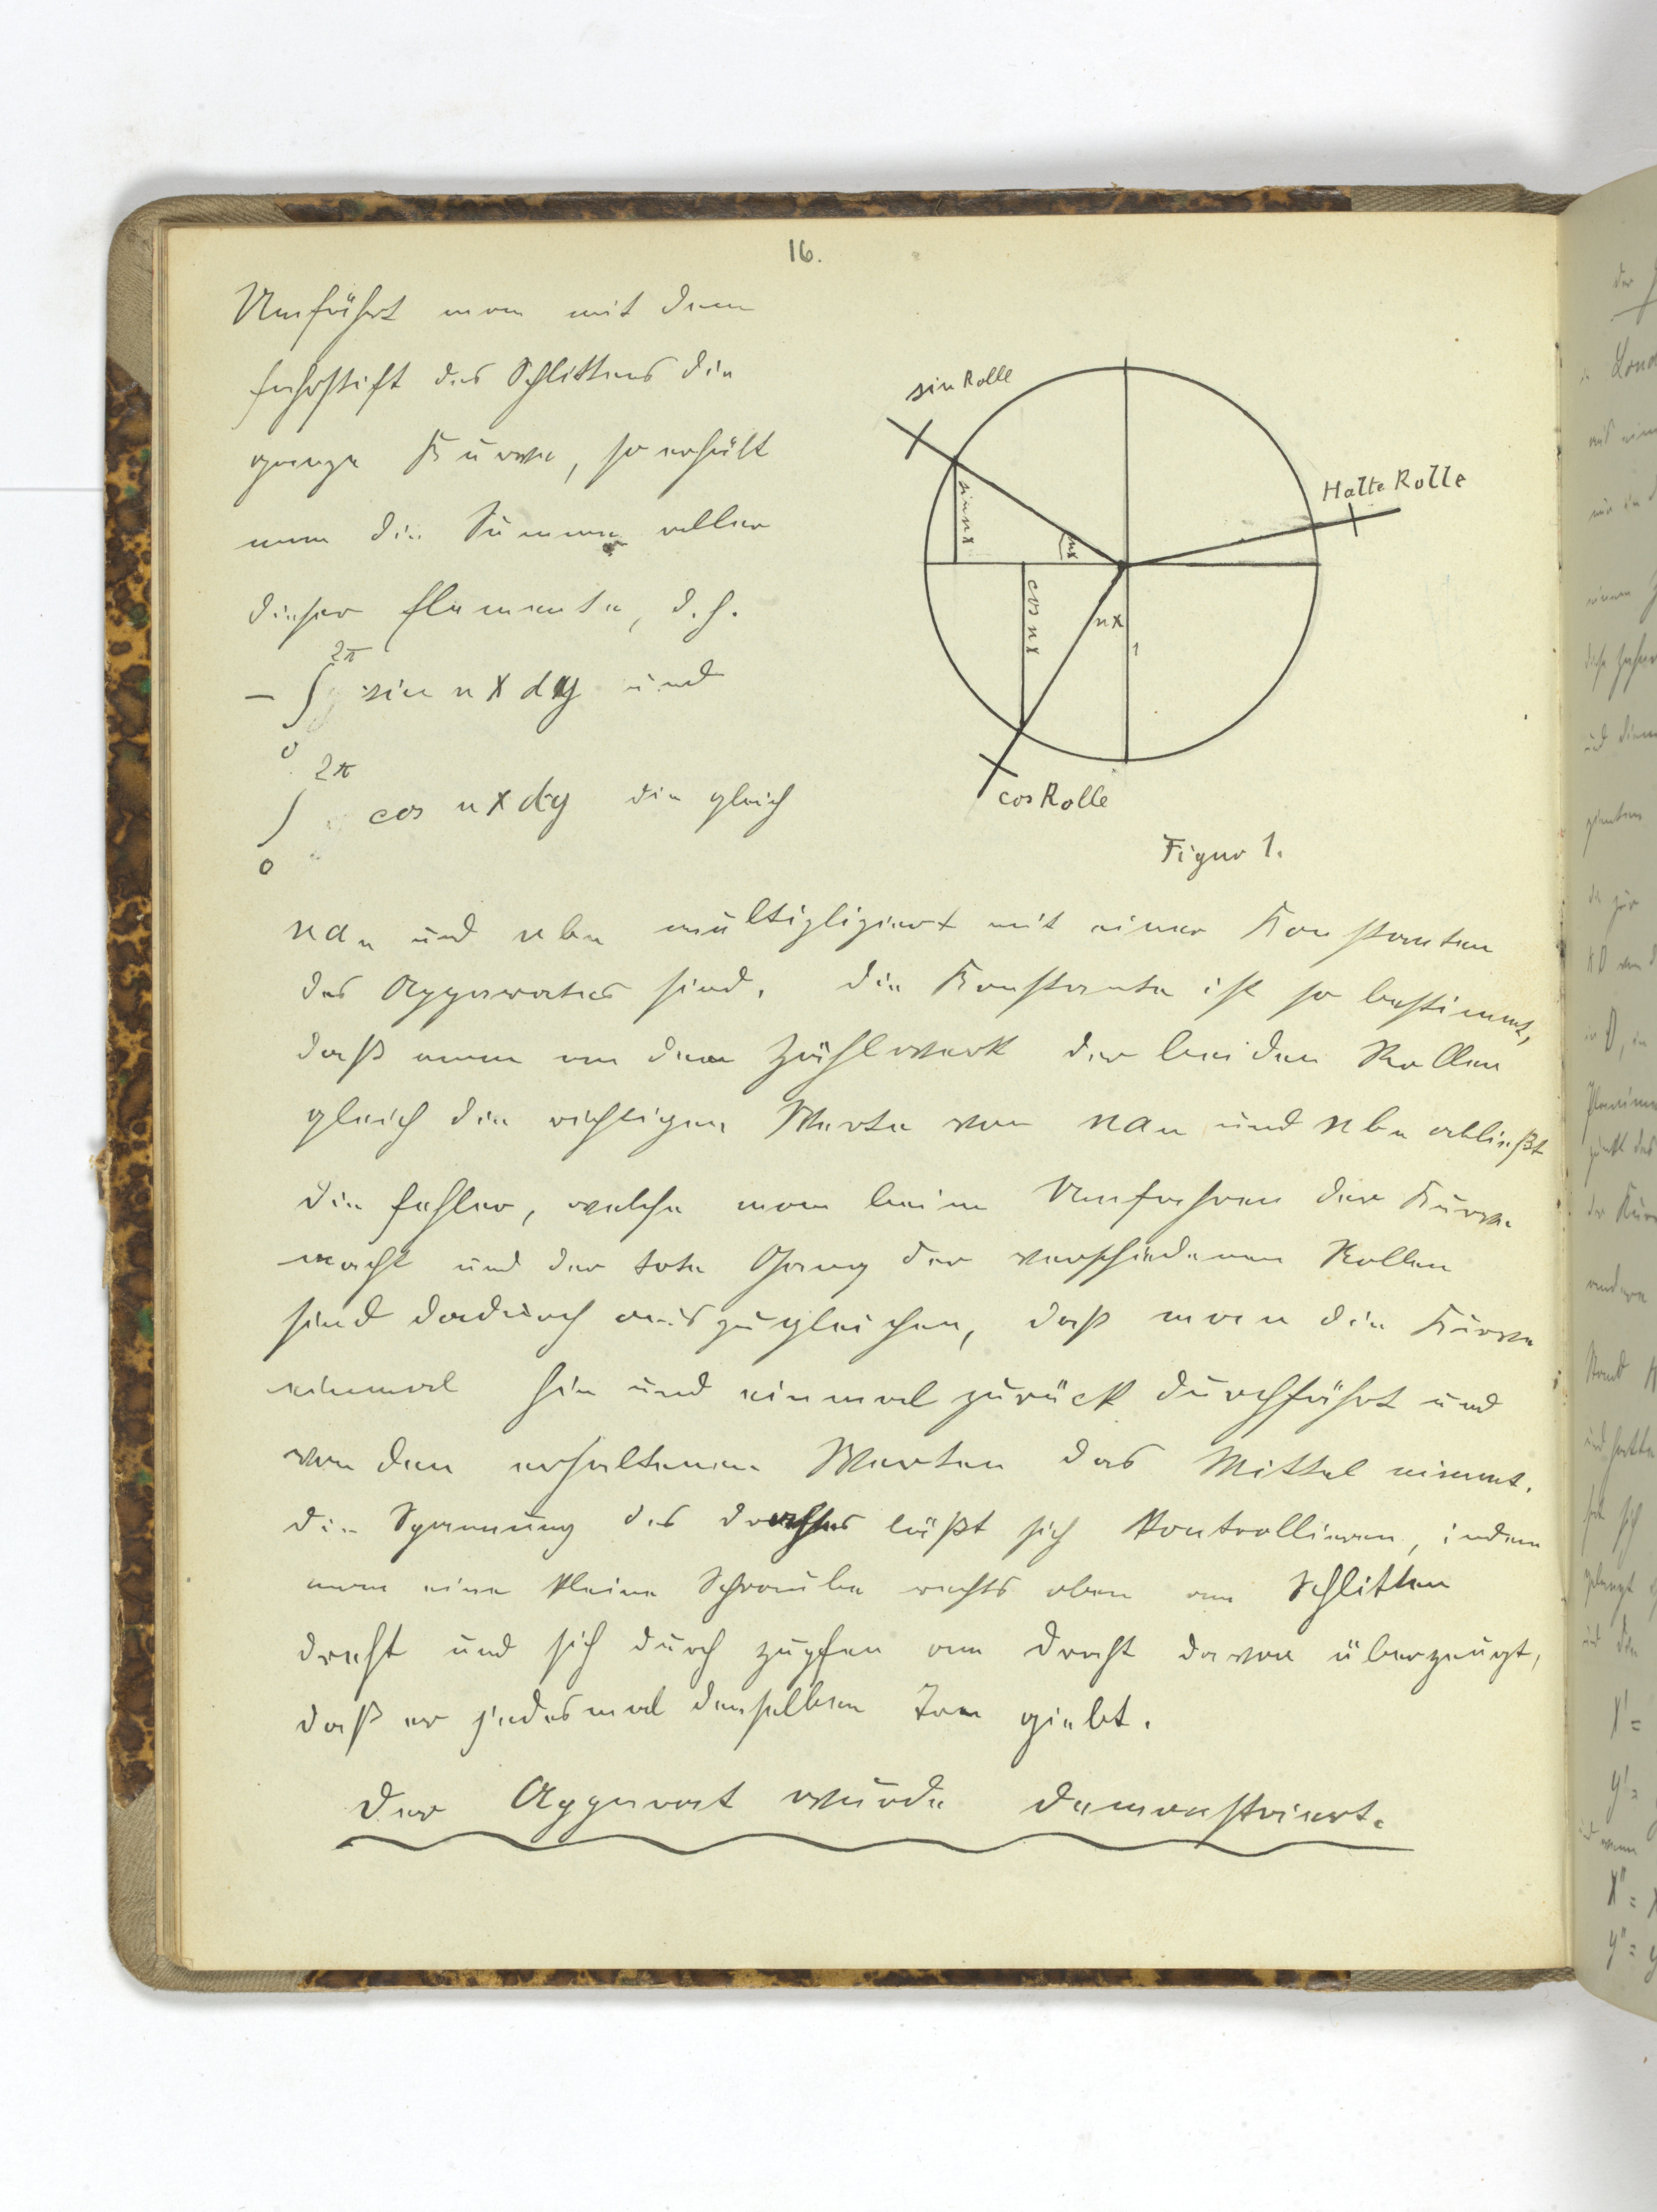 16.
Umfährt man mit dem
Fahrstift des Schlittens die
ganze Kurve, so erhält
man die Summe aller
dieser Elemente, d.h.
2π
— ∫ sin n x dy und
0
2π
∫ cos n x dy die gleich
0
sin Rolle
Halte Rolle
sin nx
nx
cos nx
nx
1
cos Rolle
Figur 1.
n aₙ und n bₙ multipliziert mit einer Konstanten
des Apparates sind. Die Konstante ist so bestimmt,
daß man an dem Zählwerk der beiden Rollen
gleich die richtigen Werte von n aₙ und n bₙ abließt
Die Fehler, welche man beim Umfahren der Kurve
macht und der tote Gang der verschiedenen Rollen
sind dadurch auszugleichen, daß man die Kurve
einmal hin und einmal zurück durchfährt und
von den erhaltenen Werten das Mittel nimmt.
Die Spannung des Drahtes läßt sich kontrollieren, indem
man eine kleine Schraube rechts oben am Schlitten
dreht und sich durch zupfen am Draht davon überzeugt,
daß er jedesmal denselben Ton giebt.
Der Apparat wurde demonstriert.